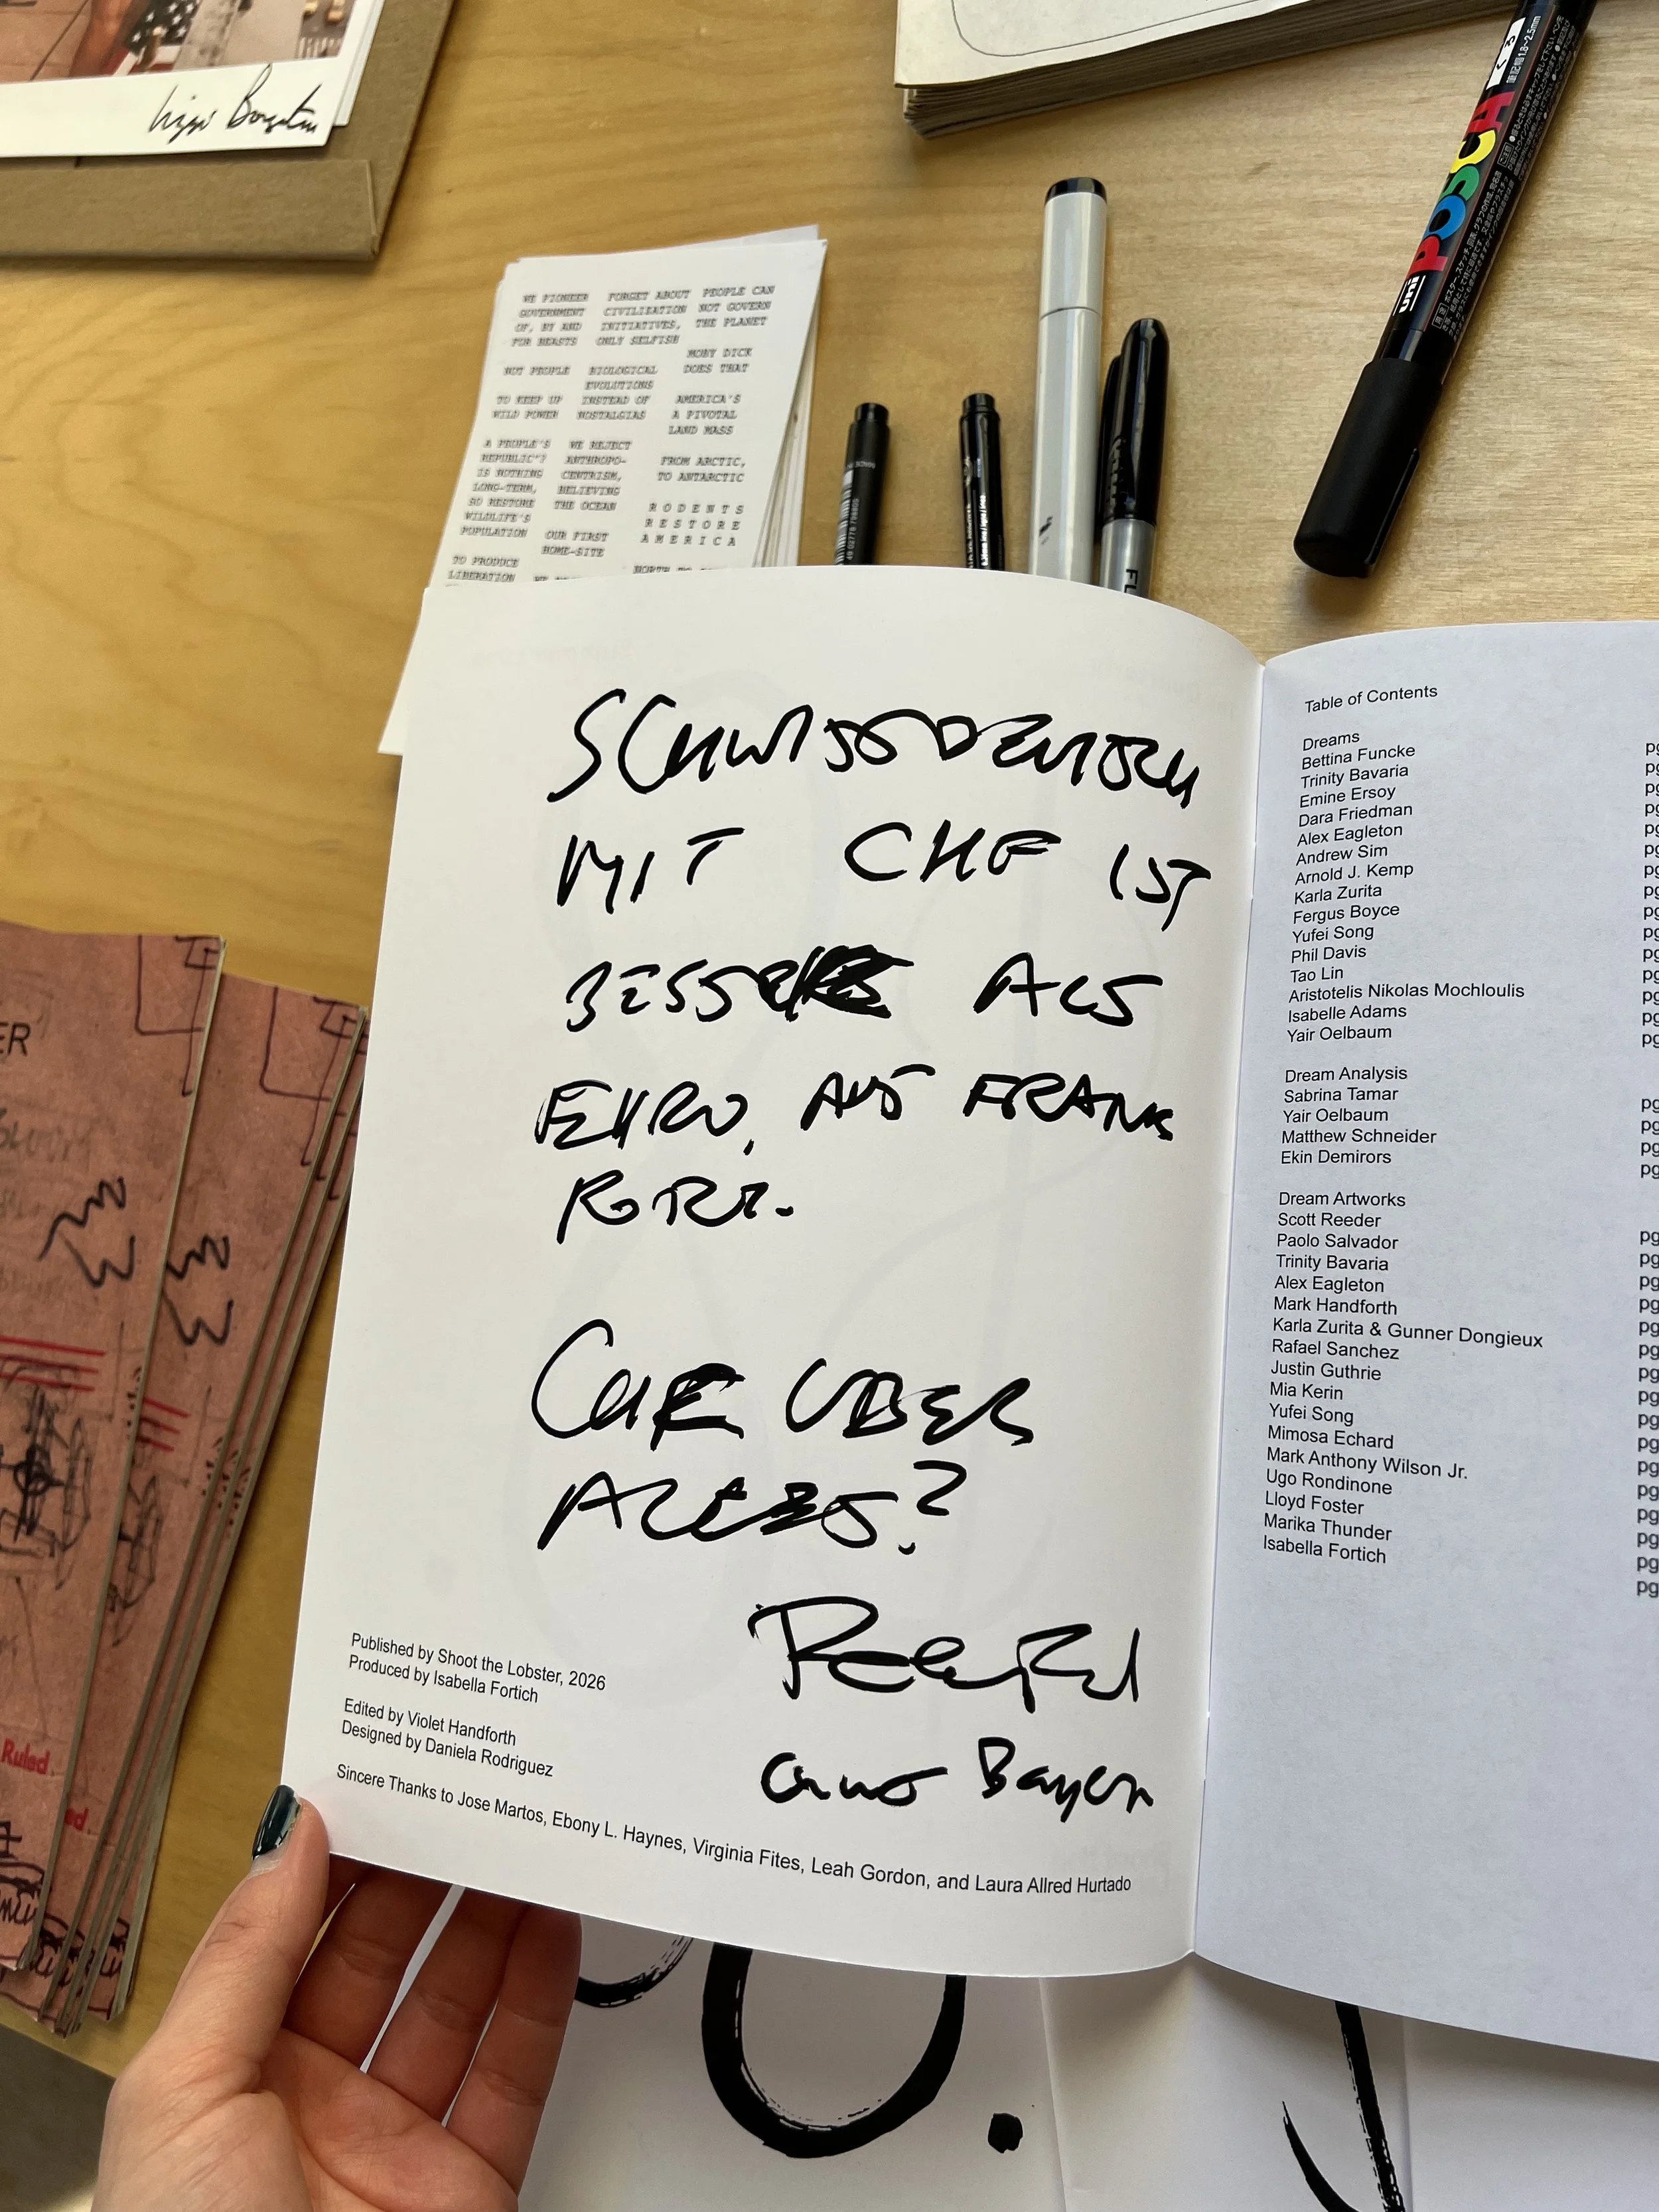 WE PIONEER
GOVERNMENT
OF, BY AND
FOR BEASTS
NOT PEOPLE
TO KEEP UP
WILD POWER
A PEOPLE'S
REPUBLIC"?
IS NOTHING
LONG-TERM,
SO RESTORE
WILDLIFE'S
POPULATION
TO PRODUCE
LIBERATION
FORGET ABOUT
CIVILIZATION
INITIATIVES,
ONLY SELFISH
BIOLOGICAL
EVOLUTIONS
INSTEAD OF
NOSTALGIAS
WE REJECT
ANTHROPO-
CENTRISM,
BELIEVING
THE OCEAN
OUR FIRST
HOME-SITE
PEOPLE CAN
NOT GOVERN
THE PLANET
MOBY DICK
DOES THAT
AMERICA'S
A PIVOTAL
LAND MASS
FROM ARCTIC,
TO ANTARCTIC
RODENTS
RESTORE
AMERICA
uni POSCA
MIT CHF IST
ALS
EURO, AUS FRANK
FORT.
CHF UBER
ALLES?
Bayern
Published by Shoot the Lobster, 2026
Produced by Isabella Fortich
Edited by Violet Handforth
Designed by Daniela Rodriguez
Sincere Thanks to Jose Martos, Ebony L. Haynes, Virginia Fites, Leah Gordon, and Laura Allred Hurtado
Table of Contents
Dreams
Bettina Funcke
Trinity Bavaria
Emine Ersoy
Dara Friedman
Alex Eagleton
Andrew Sim
Arnold J. Kemp
Karla Zurita
Fergus Boyce
Yufei Song
Phil Davis
Tao Lin
Aristotelis Nikolas Mochloulis
Isabelle Adams
Yair Oelbaum
Dream Analysis
Sabrina Tamar
Yair Oelbaum
Matthew Schneider
Ekin Demirors
Dream Artworks
Scott Reeder
Paolo Salvador
Trinity Bavaria
Alex Eagleton
Mark Handforth
Karla Zurita & Gunner Dongieux
Rafael Sanchez
Justin Guthrie
Mia Kerin
Yufei Song
Mimosa Echard
Mark Anthony Wilson Jr.
Ugo Rondinone
Lloyd Foster
Marika Thunder
Isabella Fortich
ER
Ruled